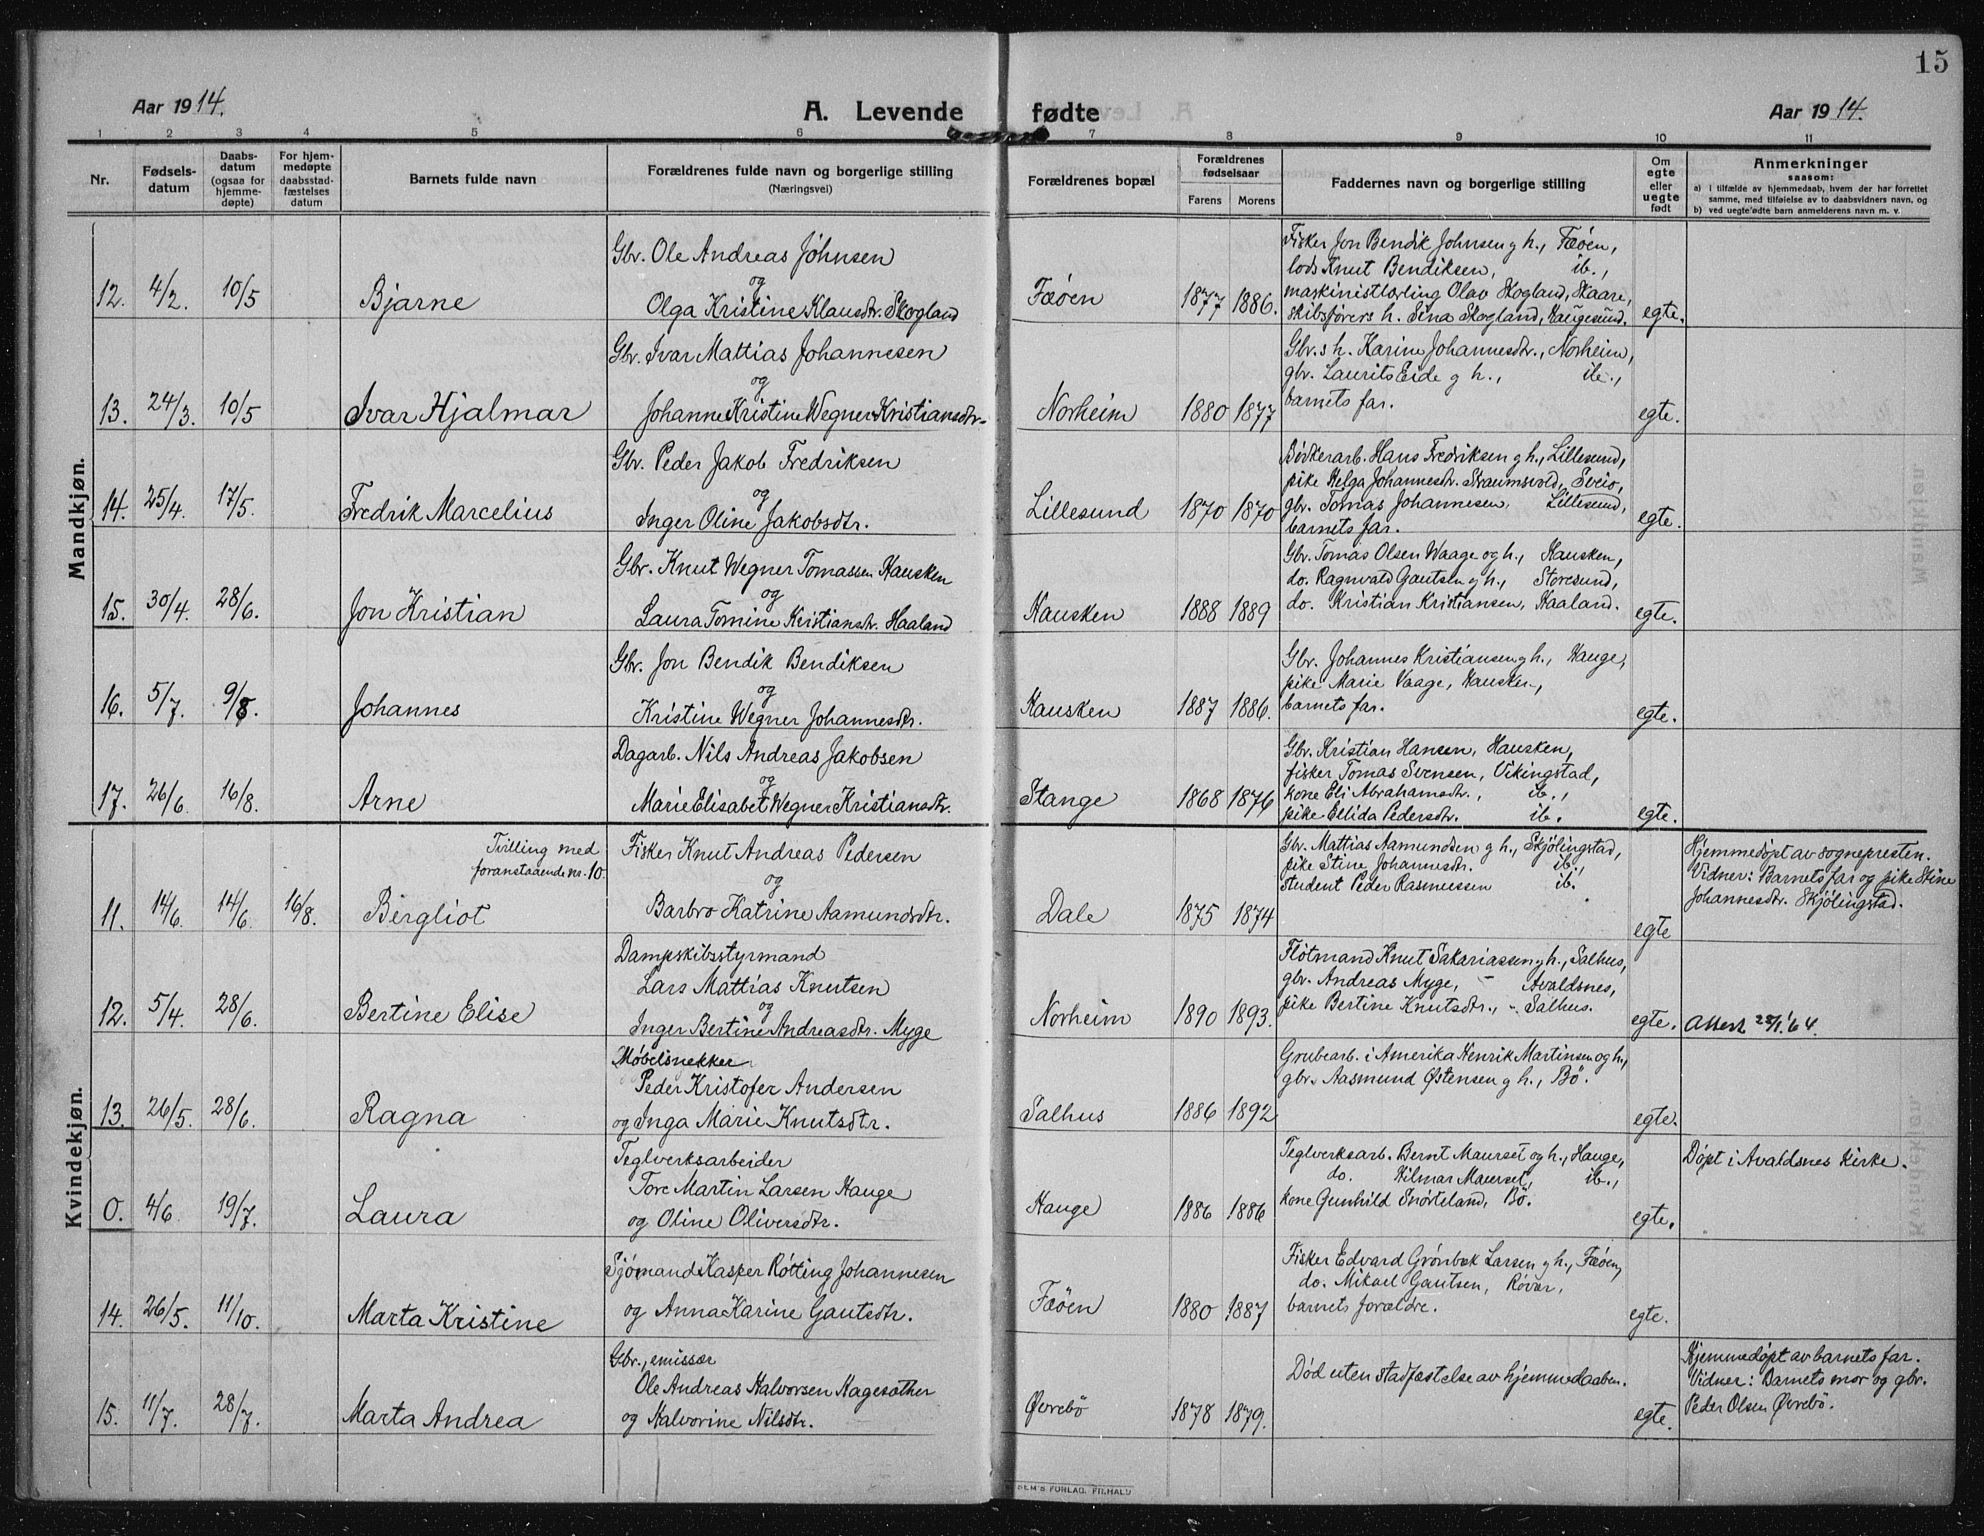 15
Aar 1914.
A. Levende fødte
Aar 1914.
1 2 3 4 5 6 7 8 9 10 11
Nr.
Fødsels-
datum
Daabs-
datum
(ogsaa for
hjemme-
døpte)
For hjem-
medøpte
daabsstad-
fæstelses
datum
Barnets fulde navn
Forældrenes fulde navn og borgerlige stilling
(Næringsvei)
Forældrenes bopæl
Forældrenes
fødselsaar
Farens Morens
Faddernes navn og borgerlige stilling
Om
egte
eller
uegte
født
Anmerkninger
saasom:
a) i tilfælde av hjemmedaab, hvem der har forrettet
samme, med tilføielse av to daabsvidners navn, og
b) ved uegte fødte barn anmelderens navn m. v.
Mandkjøn.
12. 4/2. 10/5 Bjarne
Gbr. Ole Andreas Johnsen
og
Olga Kristine Klausdtr. Skogland
Fæøen 1877 1886.
Fisker Jon Bendik Johnsen g h., Fæøen,
lods Knut Bendiksen, ib.,
maskinistlærling Olav Skogland, Skaare,
skibsførers h. Sina Skogland, Haugesund.
egte.
13. 24/3. 10/5 Ivar Hjalmar
Gbr. Ivar Mattias Johannesen
og
Johanne Kristine Wegner Kristiansdtr.
Norheim 1880 1877
Gbr.s h. Karine Johannesdtr., Norheim,
gbr. Laurits Eide g h., ib.,
barnets far.
egte.
14. 25/4. 17/5. Fredrik Marcelius
Gbr. Peder Jakob Fredriksen
og
Inger Oline Jakobsdtr.
Lillesund 1870 1870
Bødkerarb. Hans Fredriksen g h., Lillesund,
pike Helga Johannesdtr. Straumsvold, Sveio,
gbr. Tomas Johannesen, Lillesund,
barnets far.
egte.
15. 30/4. 28/6. Jon Kristian
Gbr. Knut Wegner Tomassen Hausken
og
Laura Tomine Kristiansdtr. Haaland
Hausken 1888 1889
Gbr. Tomas Olsen Waage og h., Hausken,
do. Ragnvald Gautsen g h., Storesund,
do. Kristian Kristiansen, Haaland.
egte.
16. 5/7. 9/8. Johannes
Gbr. Jon Bendik Bendiksen
og
Kristine Wegner Johannesdtr.
Hausken 1887 1886.
Gbr. Johannes Kristiansen g h., Hauge,
pike Marie Vaage, Hausken,
barnets far.
egte.
17. 26/6. 16/8. Arne
Dagarb. Nils Andreas Jakobsen
og
Marie Elisabet Wegner Kristiansdtr.
Stange 1868 1876
Gbr. Kristian Hansen, Hausken,
fisker Tomas Svensen, Vikingstad,
kone Eli Abrahamsdtr., ib.,
pike Ellida Pedersdtr. ib.
egte.
Kvindekjøn.
Tvilling med
foranstaaende nr. 10.
11. 14/6. 14/6. 16/8. Bergliot
Fisker Knut Andreas Pedersen
og
Barbro Katrine Aamundsdtr.
Dale 1875 1874
Gbr. Mattias Aamundsen g h., Skjølingstad,
pike Stine Johannesdtr. ib.,
student Peder Rasmussen ib.
egte
Hjemmedøpt av sognepresten.
Vidner: Barnets far og pike Stine
Johannesdtr. Skjølingstad.
12. 5/4. 28/6. Bertine Elise
Dampskibsstyrmand
Lars Mattias Knutsen
og
Inger Bertine Andreasdtr. Myge
Norheim 1890 1893.
Fløtmand Knut Sakariassen g h., Salhus,
gbr. Andreas Myge, – Avaldsnes,
pike Bertine Knutsdtr., – Salhus.
egte.
Attest 28/1.'64.
13. 26/5. 28/6. Ragna
Møbelsnekker
Peder Kristofer Andersen
og Inga Marie Knutsdtr.
Salhus 1886 1892
Grubearb. i Amerika Henrik Martinsen og h.,
gbr. Aasmund Østensen g h., Bø.
egte.
0. 4/6 19/7. Laura
Teglverksarbeider
Tore Martin Larsen Hauge
og Oline Oliversdtr.
Hauge 1886 1886
Teglverksarb. Bernt Maurset og h., Hauge,
do. Hilmar Maurset, ib.,
kone Gunhild Snørteland, Bø.
egte.
Døpt i Avaldsnes kirke.
14. 26/5. 11/10. Marta Kristine
Sjømand Kasper Røtting Johannesen
og Anna Karine Gautsdtr.
Fæøen 1880 1887
Fisker Edvard Grønbek Larsen g h., Fæøen,
do. Mikael Gautsen, Røvær,
barnets forældre.
egte.
15. 11/7. 28/7. Marta Andrea
Gbr., emissær
Ole Andreas Halvorsen Hagesæther
og Halvorine Nilsdtr.
Øvrebø 1878 1879.
Død uten stadfæstelse av hjemmedaaben.
egte.
Hjemmedøpt av barnets far.
Vidner: Barnets mor og gbr.
Peder Olsen Øvrebø.
SEM'S FORLAG, FR.HALD